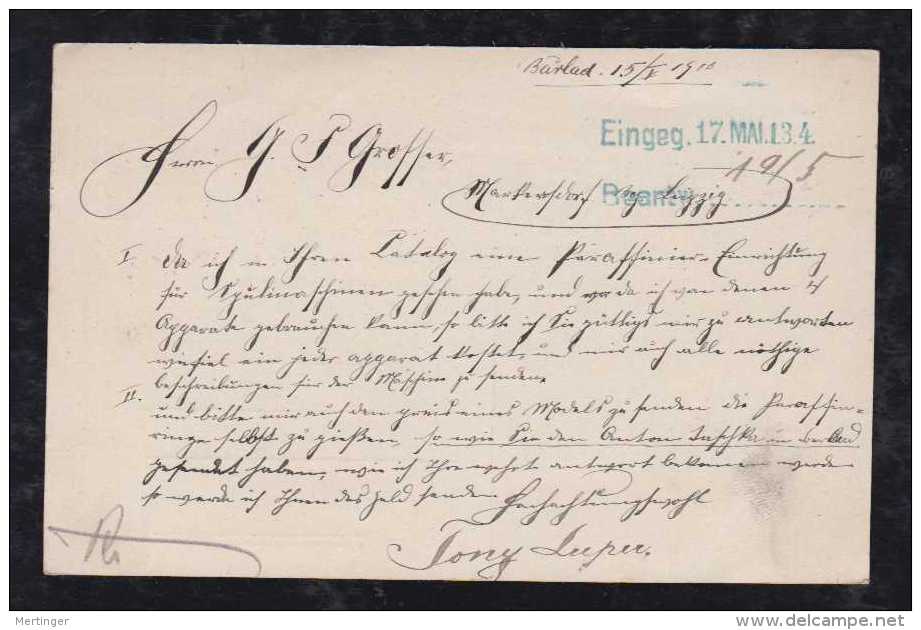 Bârlad. 15/V 1913
Eingeg. 17. MAI. 13. 4
Herrn G. F. Grosser,
19/5
Markersdorf by Leipzig
Beantw.
I. Da ich in Ihren Catalog eine Paraffinier-Einrichtung
für Spulmaschinen gesehen habe, und da ich von denen
Apparate gebrauchen kann, so bitte ich Sie gütligst mir zu antworten
wieviel ein jeder apparat kostet, und mir auch alle nöthige
beschreibungen für der Maschine zu senden.
II. und bitte mir auch den preis eines Models zu senden die Paraffin-
ringe selbst zu gießen, so wie Sie den Anton Taschka in Berlad
gesendet haben, wie ich Ihre wehrt antwort bekommen werde
so werde ich Ihnen des Geld senden Hochachtungsvohl
Tony Luper.
Mertinger
delcampe.net